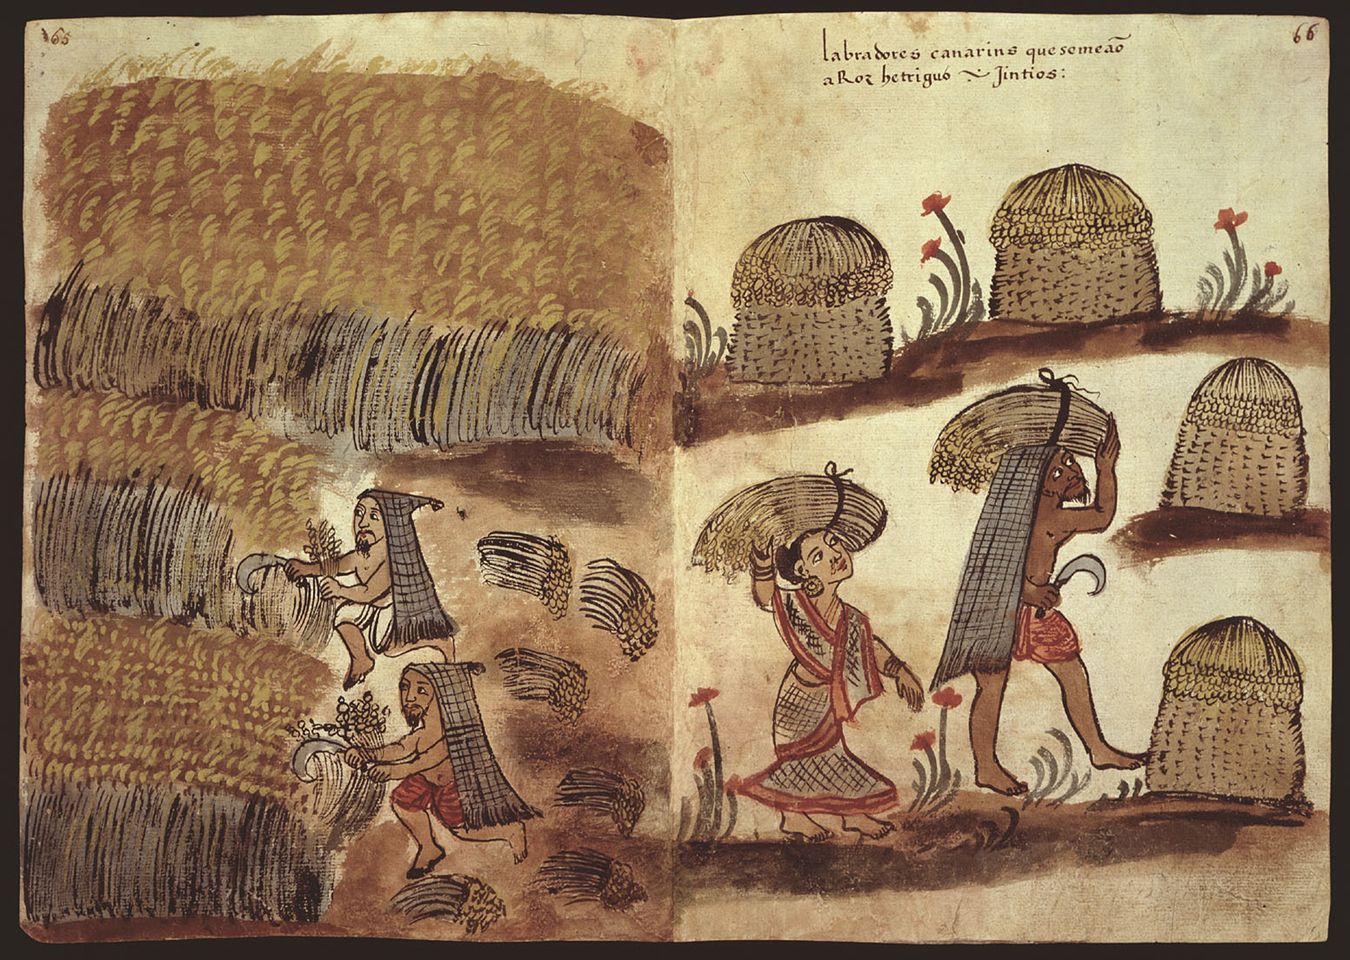 66
labradores canarins que semeaõ
a Roz hetriguo ~ Jintios: